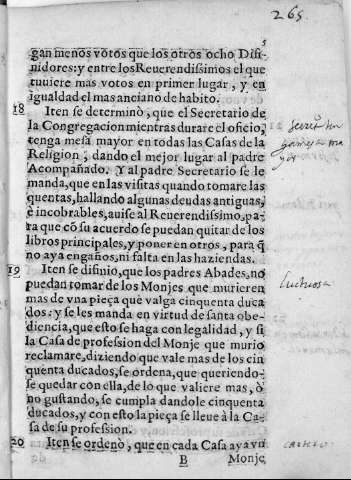 265.
5
gan menos votos que los otros ocho Difi-
nidores: y entre los Reuerendissimos el que
tuuiere mas votos en primer lugar, y en
igualdad el mas anciano de habito.
18 Iten se determinò, que el Secretario de
la Congregacion mientras durare el oficio,
tenga mesa mayor en todas las Casas de la
Religion, dando el mejor lugar al padre
Acompañado. Y al padre Secretario se le
manda, que en las visitas quando tomare las
quentas, hallando algunas deudas antiguas,
è incobrables, auise al Reuerendissimo, pa-
ra que cõ su acuerdo se puedan quitar de los
libros principales, y poner en otros, para q̃
no aya engaños, ni falta en las haziendas.
19 Iten se difinio, que los padres Abades, no
puedan tomar de los Monjes que murieren
mas de vna pieça que valga cinquenta duca
dos: y se les manda en virtud de santa obe-
diencia, que esto se haga con legalidad, y si
la Casa de profession del Monje que murio
reclamare, diziendo que vale mas de los cin
quenta ducados, se ordena, que queriendo-
se quedar con ella, de lo que valiere mas, ò
no gustando, se cumpla dandole cinquenta
ducados, y con esto la pieça se lleue à la Ca-
sa de su profession.
Luctuosa
20 Iten se ordenò, que en cada Casa aya vn
B Monje